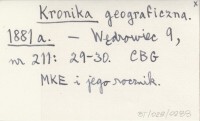 Kronika geograficzna.
1881 a. – Wędrowiec 9,
nr 211: 29-30. CBG
MKE i jego rocznik.